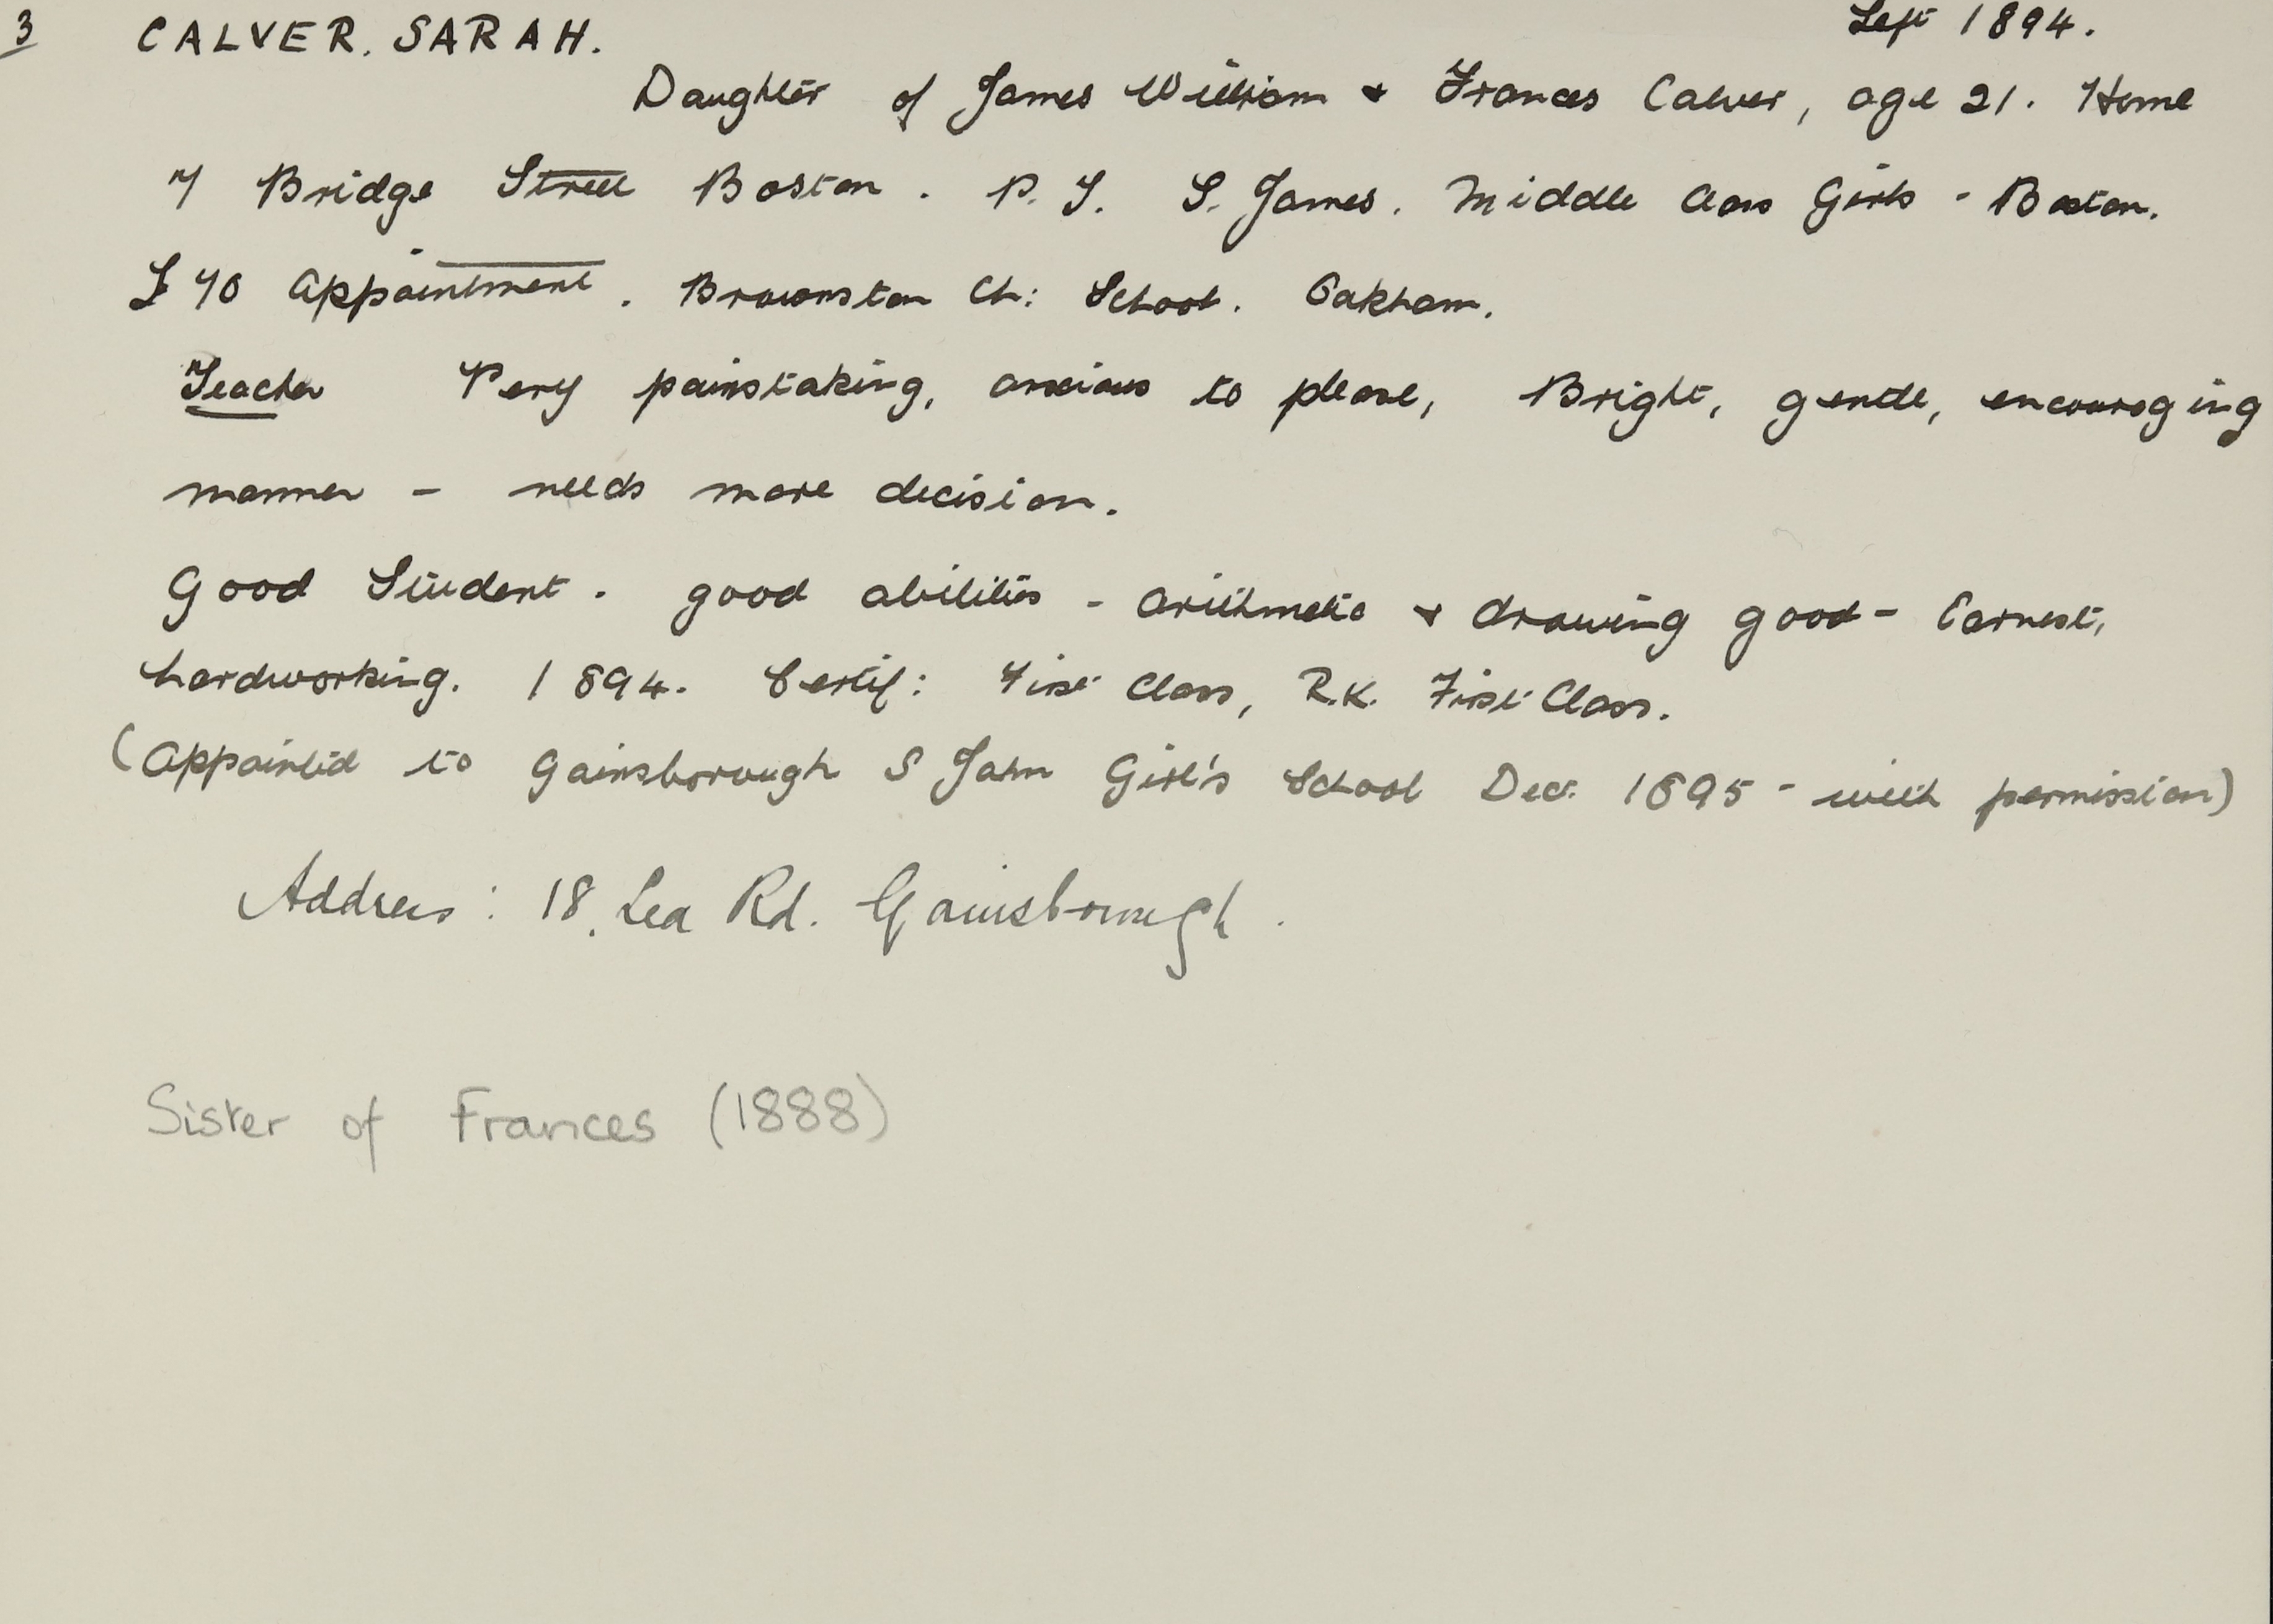 3 CALVER. SARAH. Left 1894.
Daughter of James William & Frances Calver, age 21. Home
7 Bridge Street Boston. P.T. S. James. Middle Class Girls - Boston.
£70 Appointment. Braunston Ch: School. Oakham.
Teacher Very painstaking, anxious to please, Bright, gentle, encouraging
manner - needs more decision.
Good Student. good abilities - arithmetic & drawing good - Earnest,
hardworking. 1894. Certif: First Class, R.K. First Class.
(Appointed to Gainsborough S John Girl's School Dec. 1895 - with permission)
Address: 18, Lea Rd. Gainsborough.
Sister of Frances (1888)